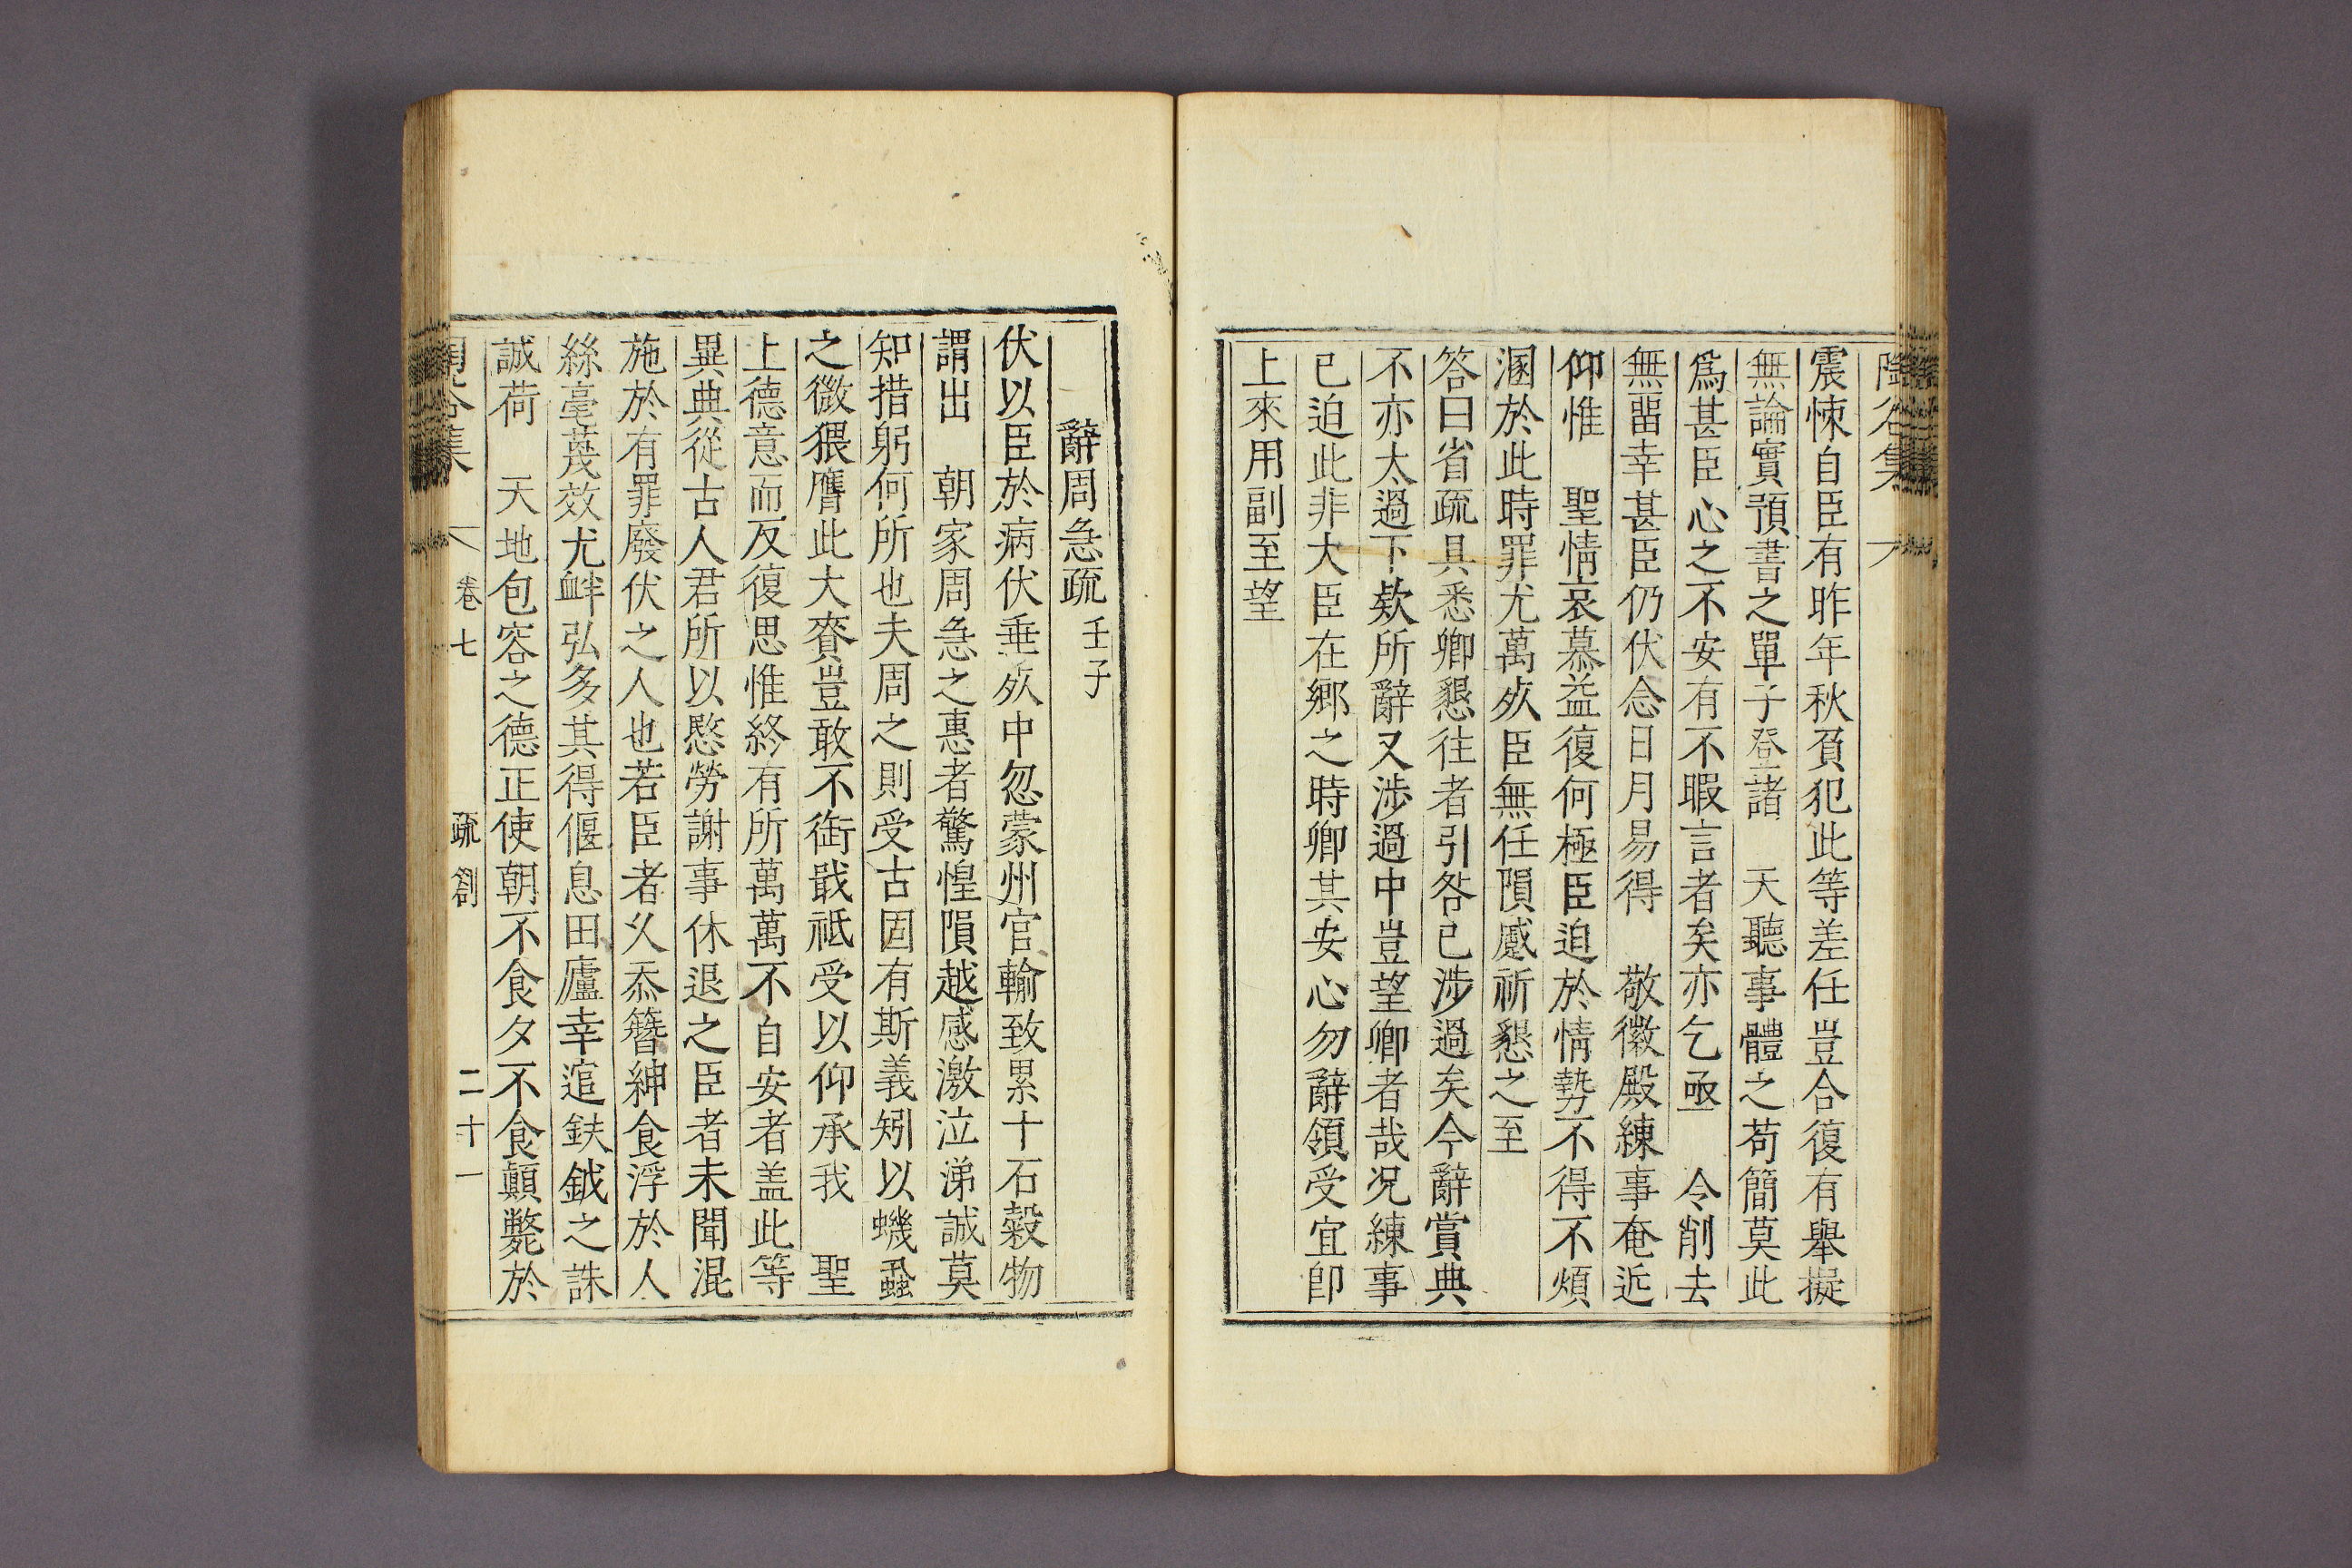 陶谷集
震悚自臣有昨年秋負犯此等差任豈合復有舉擬
無論實預書之單子登諸 天聽事體之苟簡莫此
爲甚臣心之不安有不暇言者矣亦乞亟 令削去
無留幸甚臣仍伏念日月易得 敬徽殿練事奄近
仰惟 聖情哀慕益復何極臣迫於情勢不得不煩
溷於此時罪尤萬㱡臣無任隕蹙祈懇之至
答曰省疏具悉卿懇往者引咎已涉過矣今辭賞典
不亦太過下欵所辭又涉過中豈望卿者哉况練事
已迫此非大臣在鄉之時卿其安心勿辭領受宜卽
上來用副至望
辭周急疏 壬子
伏以臣於病伏垂㱡中忽蒙州官輸致累十石穀物
謂出 朝家周急之惠者驚惶隕越感激泣涕誠莫
知措躬何所也夫周之則受古固有斯義矧以蟣蝨
之微猥膺此大賚豈敢不銜戢祗受以仰承我 聖
上德意而反復思惟終有所萬萬不自安者盖此等
異典從古人君所以愍勞謝事休退之臣者未聞混
施於有罪廢伏之人也若臣者久忝簪紳食浮於人
絲毫蔑效尤衅弘多其得偃息田廬幸逭鈇鉞之誅
誠荷 天地包容之德正使朝不食夕不食顚斃於
陶谷集 卷七 疏劄 二十一